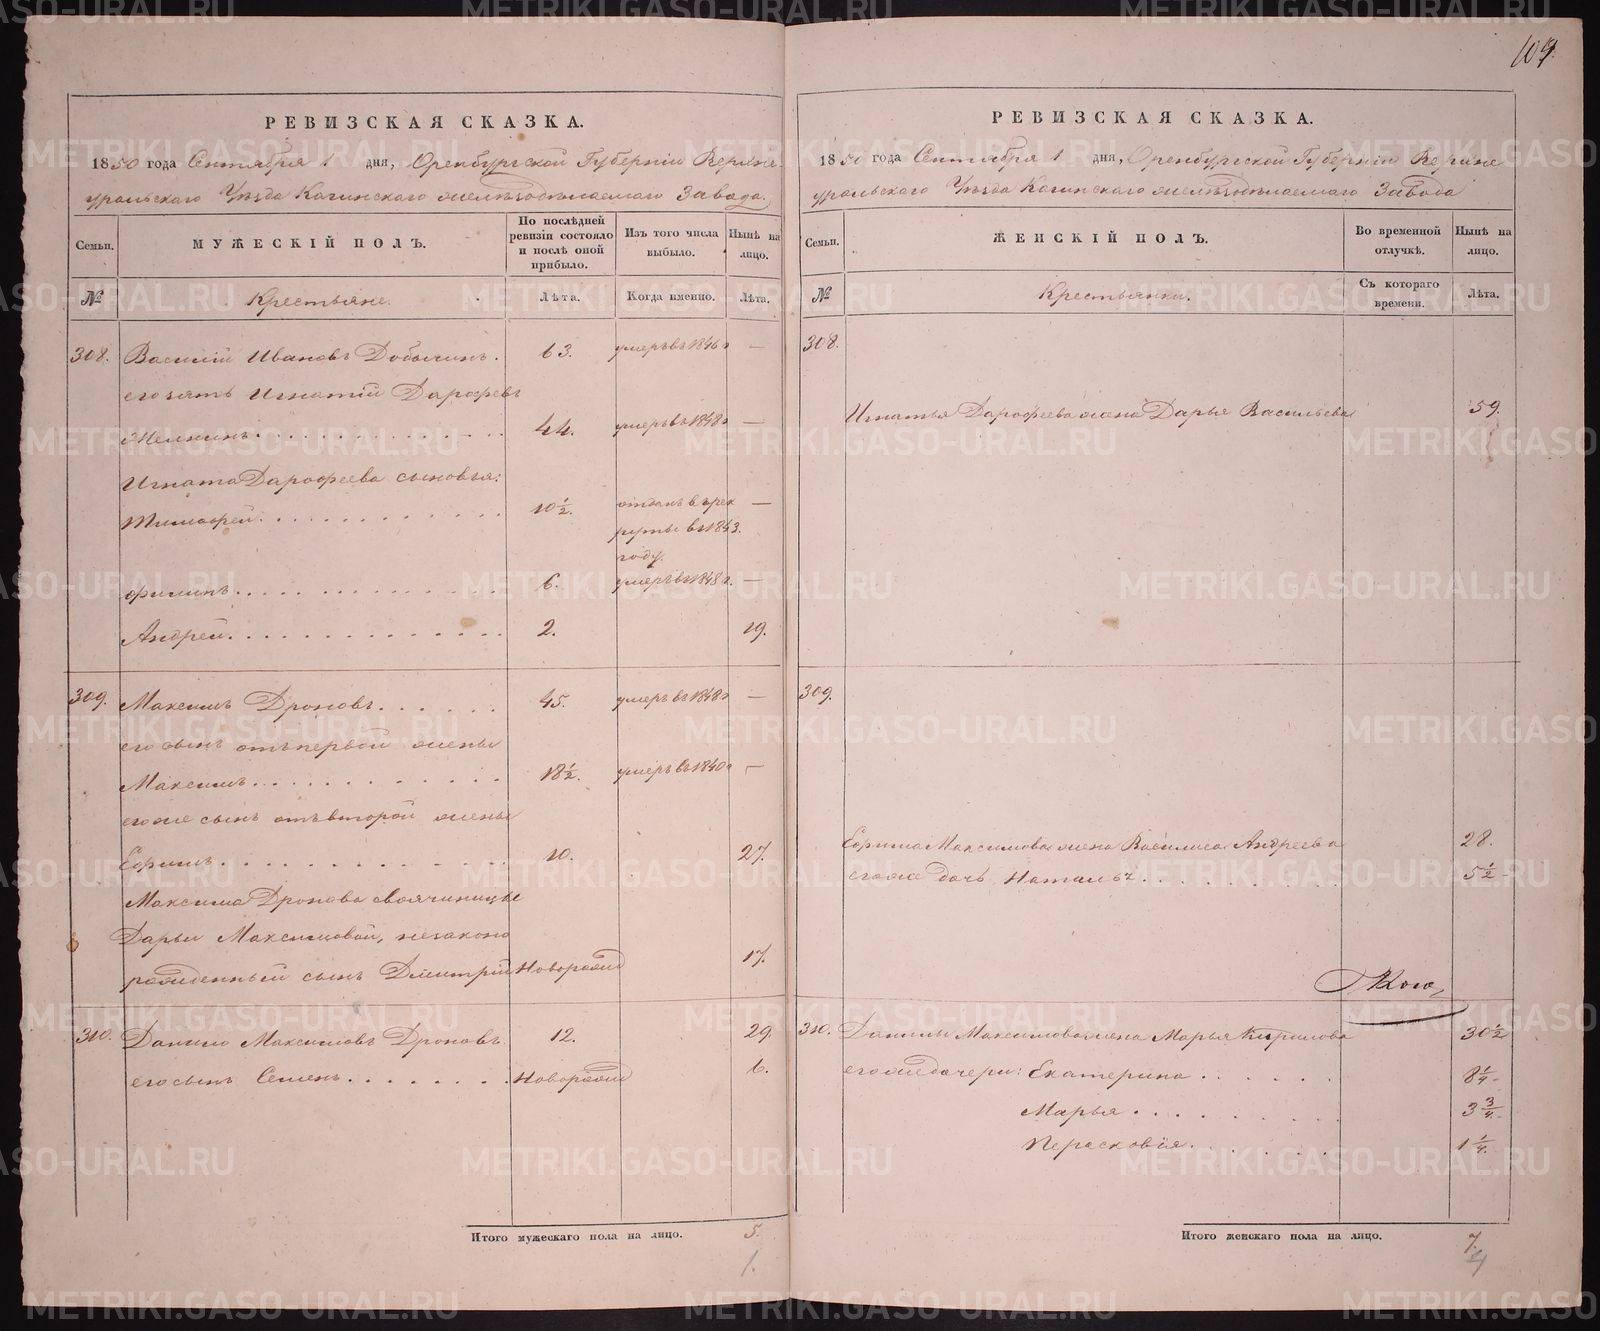 109
РЕВИЗСКАЯ СКАЗКА.
1850 года Сентября 1 дня, Оренбургской Губернiи Верхне
уральскаго Уѣзда Кагинскаго желѣзодѣлаемаго Завода.
Семьи. МУЖЕСКIЙ ПОЛЪ. По послѣдней ревизiи состояло и послѣ оной прибыло. Изъ того числа выбыло. Нынѣ на лицо.
№ Крестьяне. Лѣта. Когда именно. Лѣта.
308. Василiй Ивановъ Добычинъ. 63. умеръ въ 1846 г —
его зять Игнатiй Дарофѣевъ
Желнинъ. 44. умеръ въ 1848 г —
Игната Дарофеева сыновья:
Тимофей. 10½. отданъ въ рек —
руты въ 1843.
году.
Филипъ. 6. умеръ въ 1848 г. —
Андрей. 2. 19.
309. Максимъ Дроновъ. 45. умеръ въ 1848 г —
его сынъ отъ первой жены
Максимъ. 18½. умеръ въ 1840 г —
его же сынъ отъ второй жены
Ефимъ. 10. 27.
Максима Дронова своячиницы
Дарьи Максимовой, незаконо
рожденный сынъ Дмитрiй Новорожд 17.
310. Данило Максимовъ Дроновъ. 12. 29.
его сынъ Семенъ. Новорожд 6.
Итого мужескаго пола на лицо. 5.
1.
РЕВИЗСКАЯ СКАЗКА.
1850 года Сентября 1 дня, Оренбургской Губернiи Верхне
уральскаго Уѣзда Кагинскаго желѣзодѣлаемаго Завода
Семьи. ЖЕНСКIЙ ПОЛЪ. Во временной отлучкѣ. Нынѣ на лицо.
№ Крестьянки. Съ котораго времени. Лѣта.
308.
Игнатья Дарофеева жена Дарья Васильева 59.
309.
Ефима Максимова жена Василиса Андреева 28.
его же дочь Наталья 5½
310. Данилы Максимова жена Марья Кирилова 30½
его же дочери: Екатерина 8¼
Марья 3¾
Перасковiя. 1¼.
Итого женскаго пола на лицо. 7.
4
METRIKI.GASO-URAL.RU